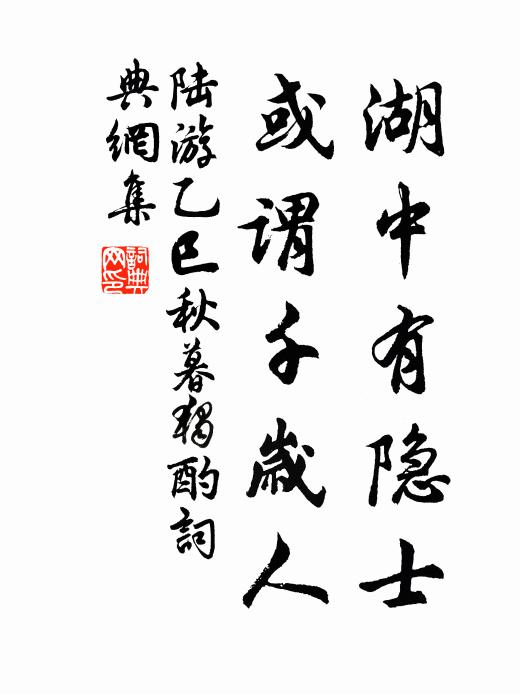 湖中有隐士
或谓千歲人
陆游乙巳秋暮獨酌詞
典網集
詞典
网印